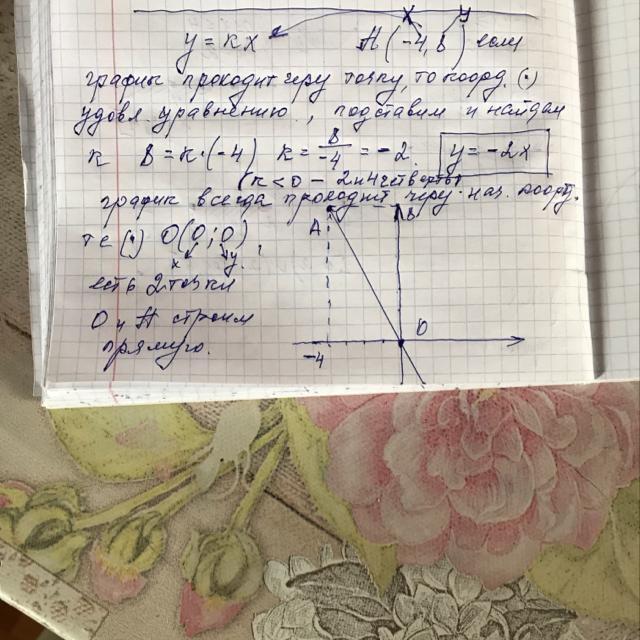 x y
y = kx A(-4, 8) если
график проходит через точку, то коорд. (·)
удовл уравнению, подставим и найдем
k 8 = k·(-4) k = 8/-4 = -2. y = -2x
(k < 0 - 2 и 4 четверть)
график всегда проходит через нач. коорд.
те (·) O(0; 0),
x y
есть 2 точки
O и A строим
прямую.
A 8
O
-4